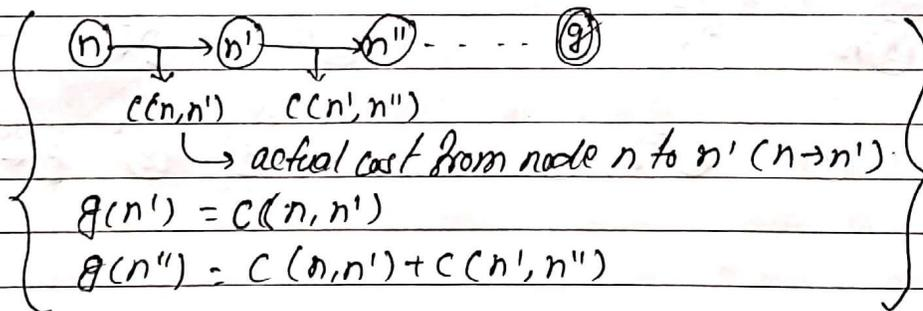 n n' n'' - - - - - g
C(n,n') C(n',n'')
↳ actual cost from node n to n' (n→n').
g(n') = C(n,n')
g(n'') = C(n,n') + C(n',n'')